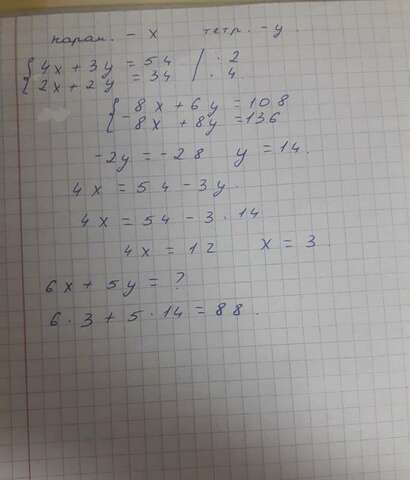 каран. - x тетр. - y.
{ 4x + 3y = 54 | · 2
{ 2x + 2y = 34 | · 4
{ 8x + 6y = 108
{ - 8x + 8y = 136
-2y = -28 y = 14.
4x = 54 - 3y.
4x = 54 - 3 · 14
4x = 12 x = 3
6x + 5y = ?
6 · 3 + 5 · 14 = 88.